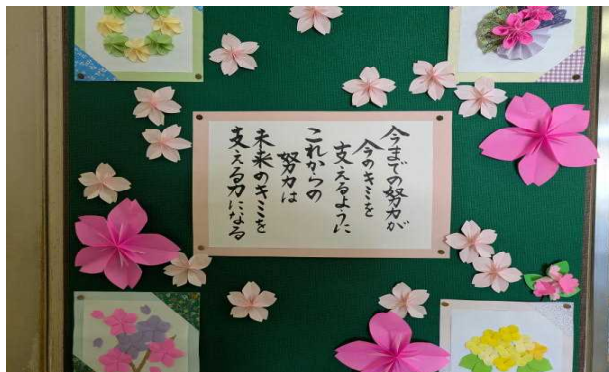 今までの努力が
今のキミを
支えるように
これからの
努力は
未来のキミを
支える力になる